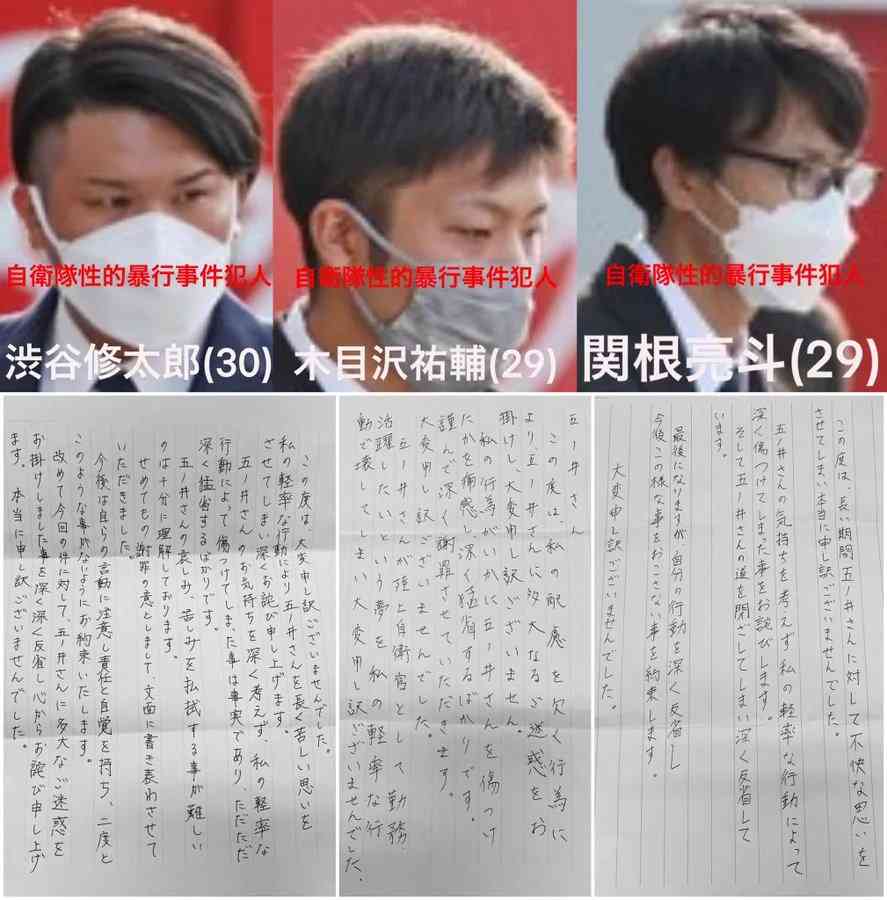 自衛隊性的暴行事件犯人
自衛隊性的暴行事件犯人
自衛隊性的暴行事件犯人
渋谷修太郎(30)
木目沢祐輔(29)
関根亮斗(29)
この度は、大変申し訳ございませんでした。
私の軽率な行動により五ノ井さんを長く苦しい思いを
させてしまい深くお詫び申し上げます。
五ノ井さんのお気持ちを深く考えず、私の軽率な
行動によって傷つけてしまった事は事実であり、ただただ
深く猛省するばかりです。
五ノ井さんの哀しみ、苦しみを払拭する事が難しい
のは十分に理解しております。
せめてもの謝罪の意としまして、文面に書き表わさせて
いただきました。
今後は自らの言動に注意し責任と自覚を持ち、二度と
このような事がないようにお約束いたします。
改めて今回の件に対して、五ノ井さんに多大なご迷惑を
お掛けしました事を深く深く反省し心からお詫び申し上げ
ます。本当に申し訳ございませんでした。
五ノ井さん
この度は、私の配慮を欠く行為に
より五ノ井さんに多大なるご迷惑をお
掛けし、大変申し訳ございません。
私の行為がいかに五ノ井さんを傷つけ
たかを痛感し、深く猛省するばかりです。
謹んで深く謝罪させていただきます。
大変申し訳ございませんでした。
五ノ井さんが陸上自衛官として勤務、
活躍したいという夢を私の軽率な行
動で壊してしまい大変申し訳ございませんでした。
この度は、長い期間五ノ井さんに対して不快な思いを
させてしまい本当に申し訳ございませんでした。
五ノ井さんの気持ちを考えず私の軽率な行動によって
深く傷つけてしまった事をお詫びします。
そして五ノ井さんの道を閉ざしてしまい深く反省して
います。
最後になりますが自分の行動を深く反省し
今後この様な事をおこさない事を約束します。
大変申し訳ございませんでした。